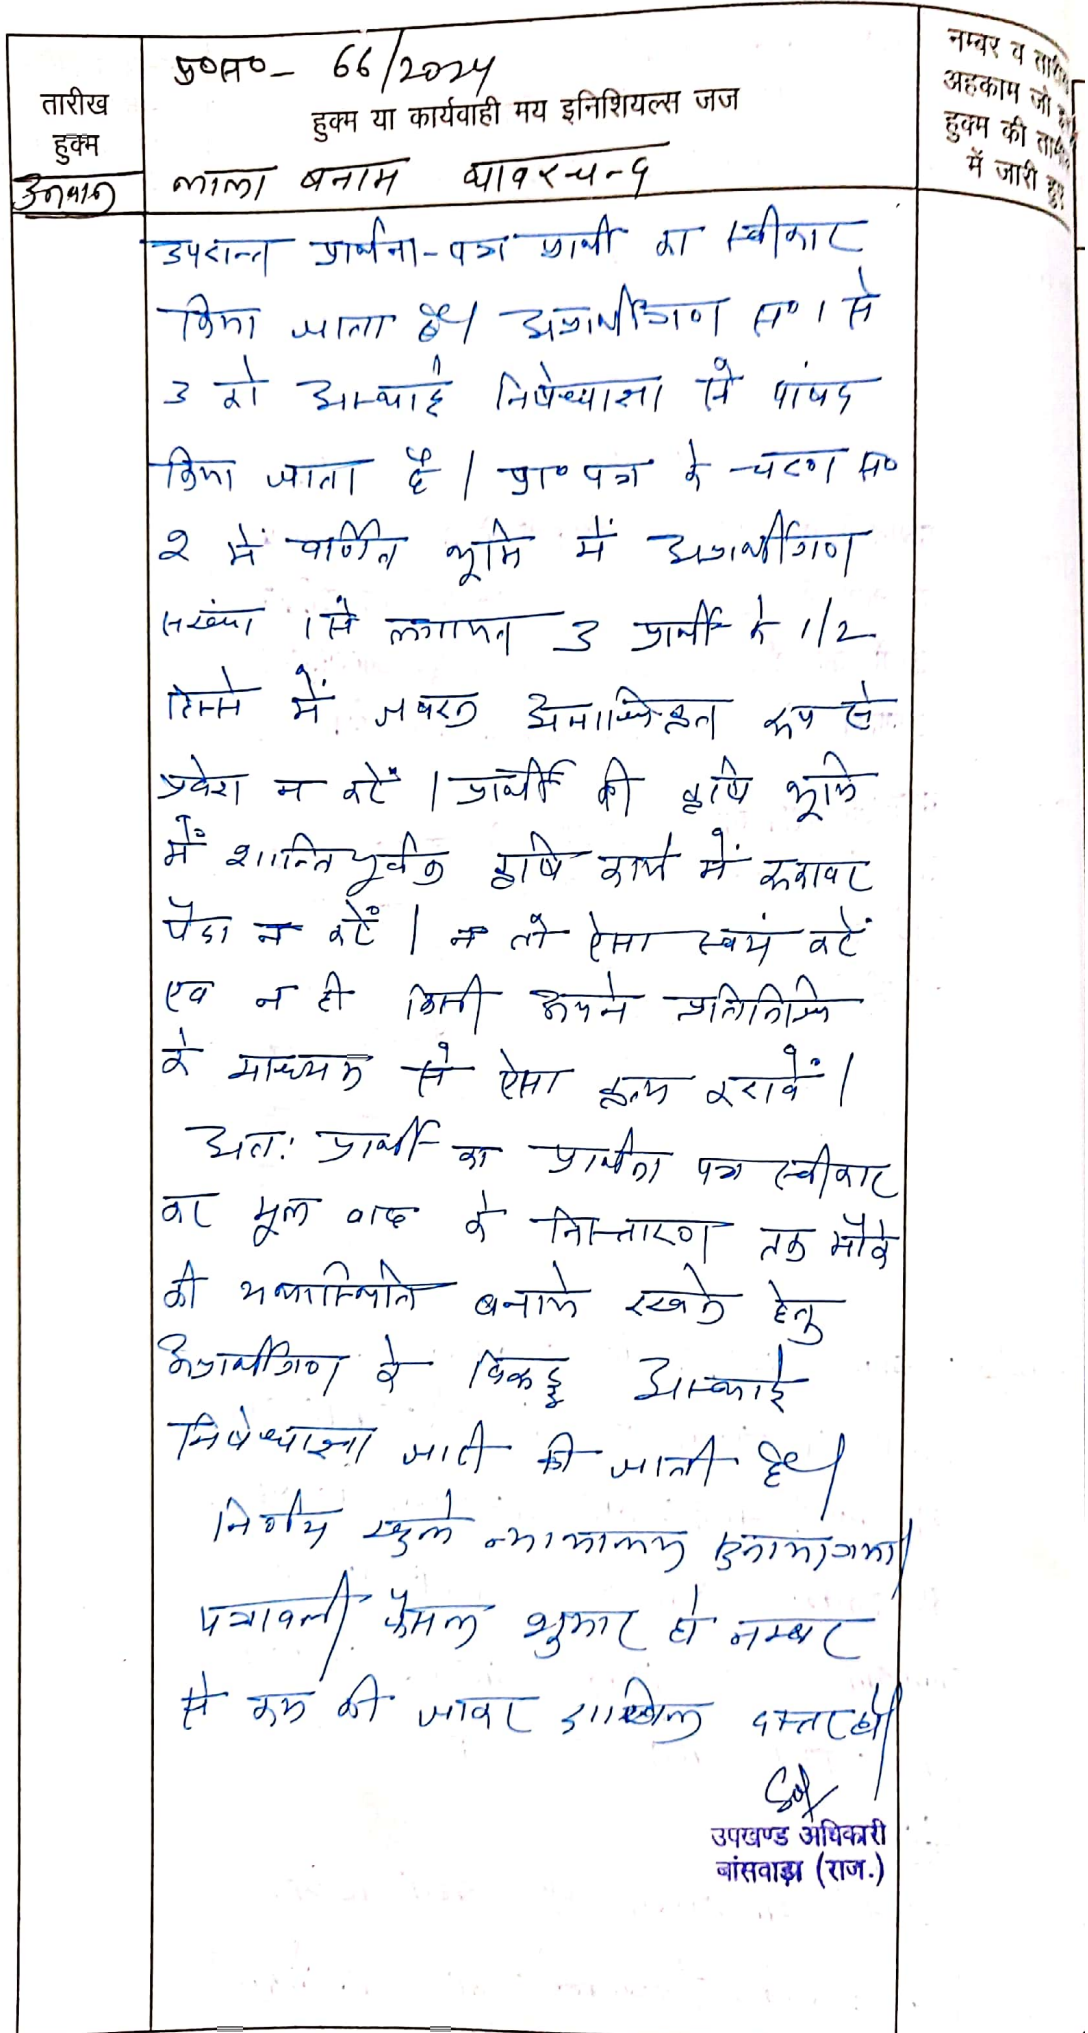 प्र०स०- 66/2024
तारीख
हुक्म
हुक्म या कार्यवाही मय इनिशियल्स जज
नम्बर व
अहकाम जो
हुक्म की
में जारी हुए
उनवान
लाला बनाम
उपरान्त प्रार्थना-पत्र प्रार्थी का स्वीकार
किया जाता है। अप्रार्थीगण स० 1 से
3 को अस्थाई निषेधाज्ञा से पांबद
किया जाता है। प्रा० पत्र के चरण स०
2 में वर्णित भूमि में अप्रार्थीगण
सख्या 1 से लगायत 3 प्रार्थी के 1/2
हिस्से में जबरन अनाधिकृत रूप से
प्रवेश न करें। प्रार्थी की कृषि भूमि
में शान्तिपूर्वक कृषि कार्य में रूकावट
पैदा न करें। न तो ऐसा स्वयं करें
एव न ही किसी अपने प्रतिनिधि
के माध्यम से ऐसा कृत्य करावें।
अतः प्रार्थी का प्रार्थना पत्र स्वीकार
कर मूल वाद के निस्तारण तक मौके
की यथास्थिति बनाये रखने हेतु
अप्रार्थीगण के विरूद्ध अस्थाई
निषेधाज्ञा जारी की जाती है।
निर्णय खुले न्यायालय सुनाया गया।
पत्रावली फैसल शुमार हो नम्बर
से कम की जाकर दाखिल दफ्तर हो।
उपखण्ड अधिकारी
बांसवाड़ा (राज.)